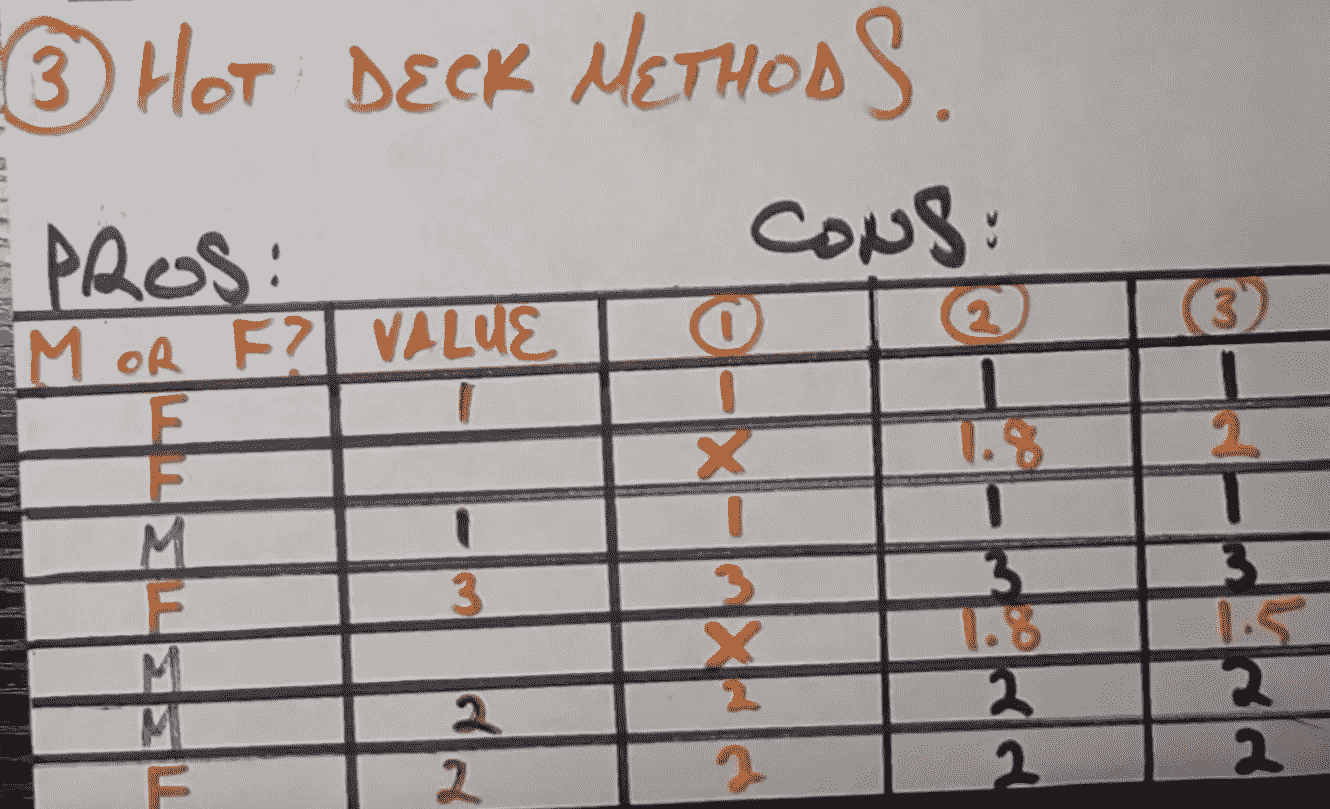 3 HOT DECK METHODS.
PROS: CONS:
M OR F? VALUE 1 2 3
F 1 1 1 1
F X 1.8 2
M 1 1 1 1
F 3 3 3 3
M X 1.8 1.5
M 2 2 2 2
F 2 2 2 2